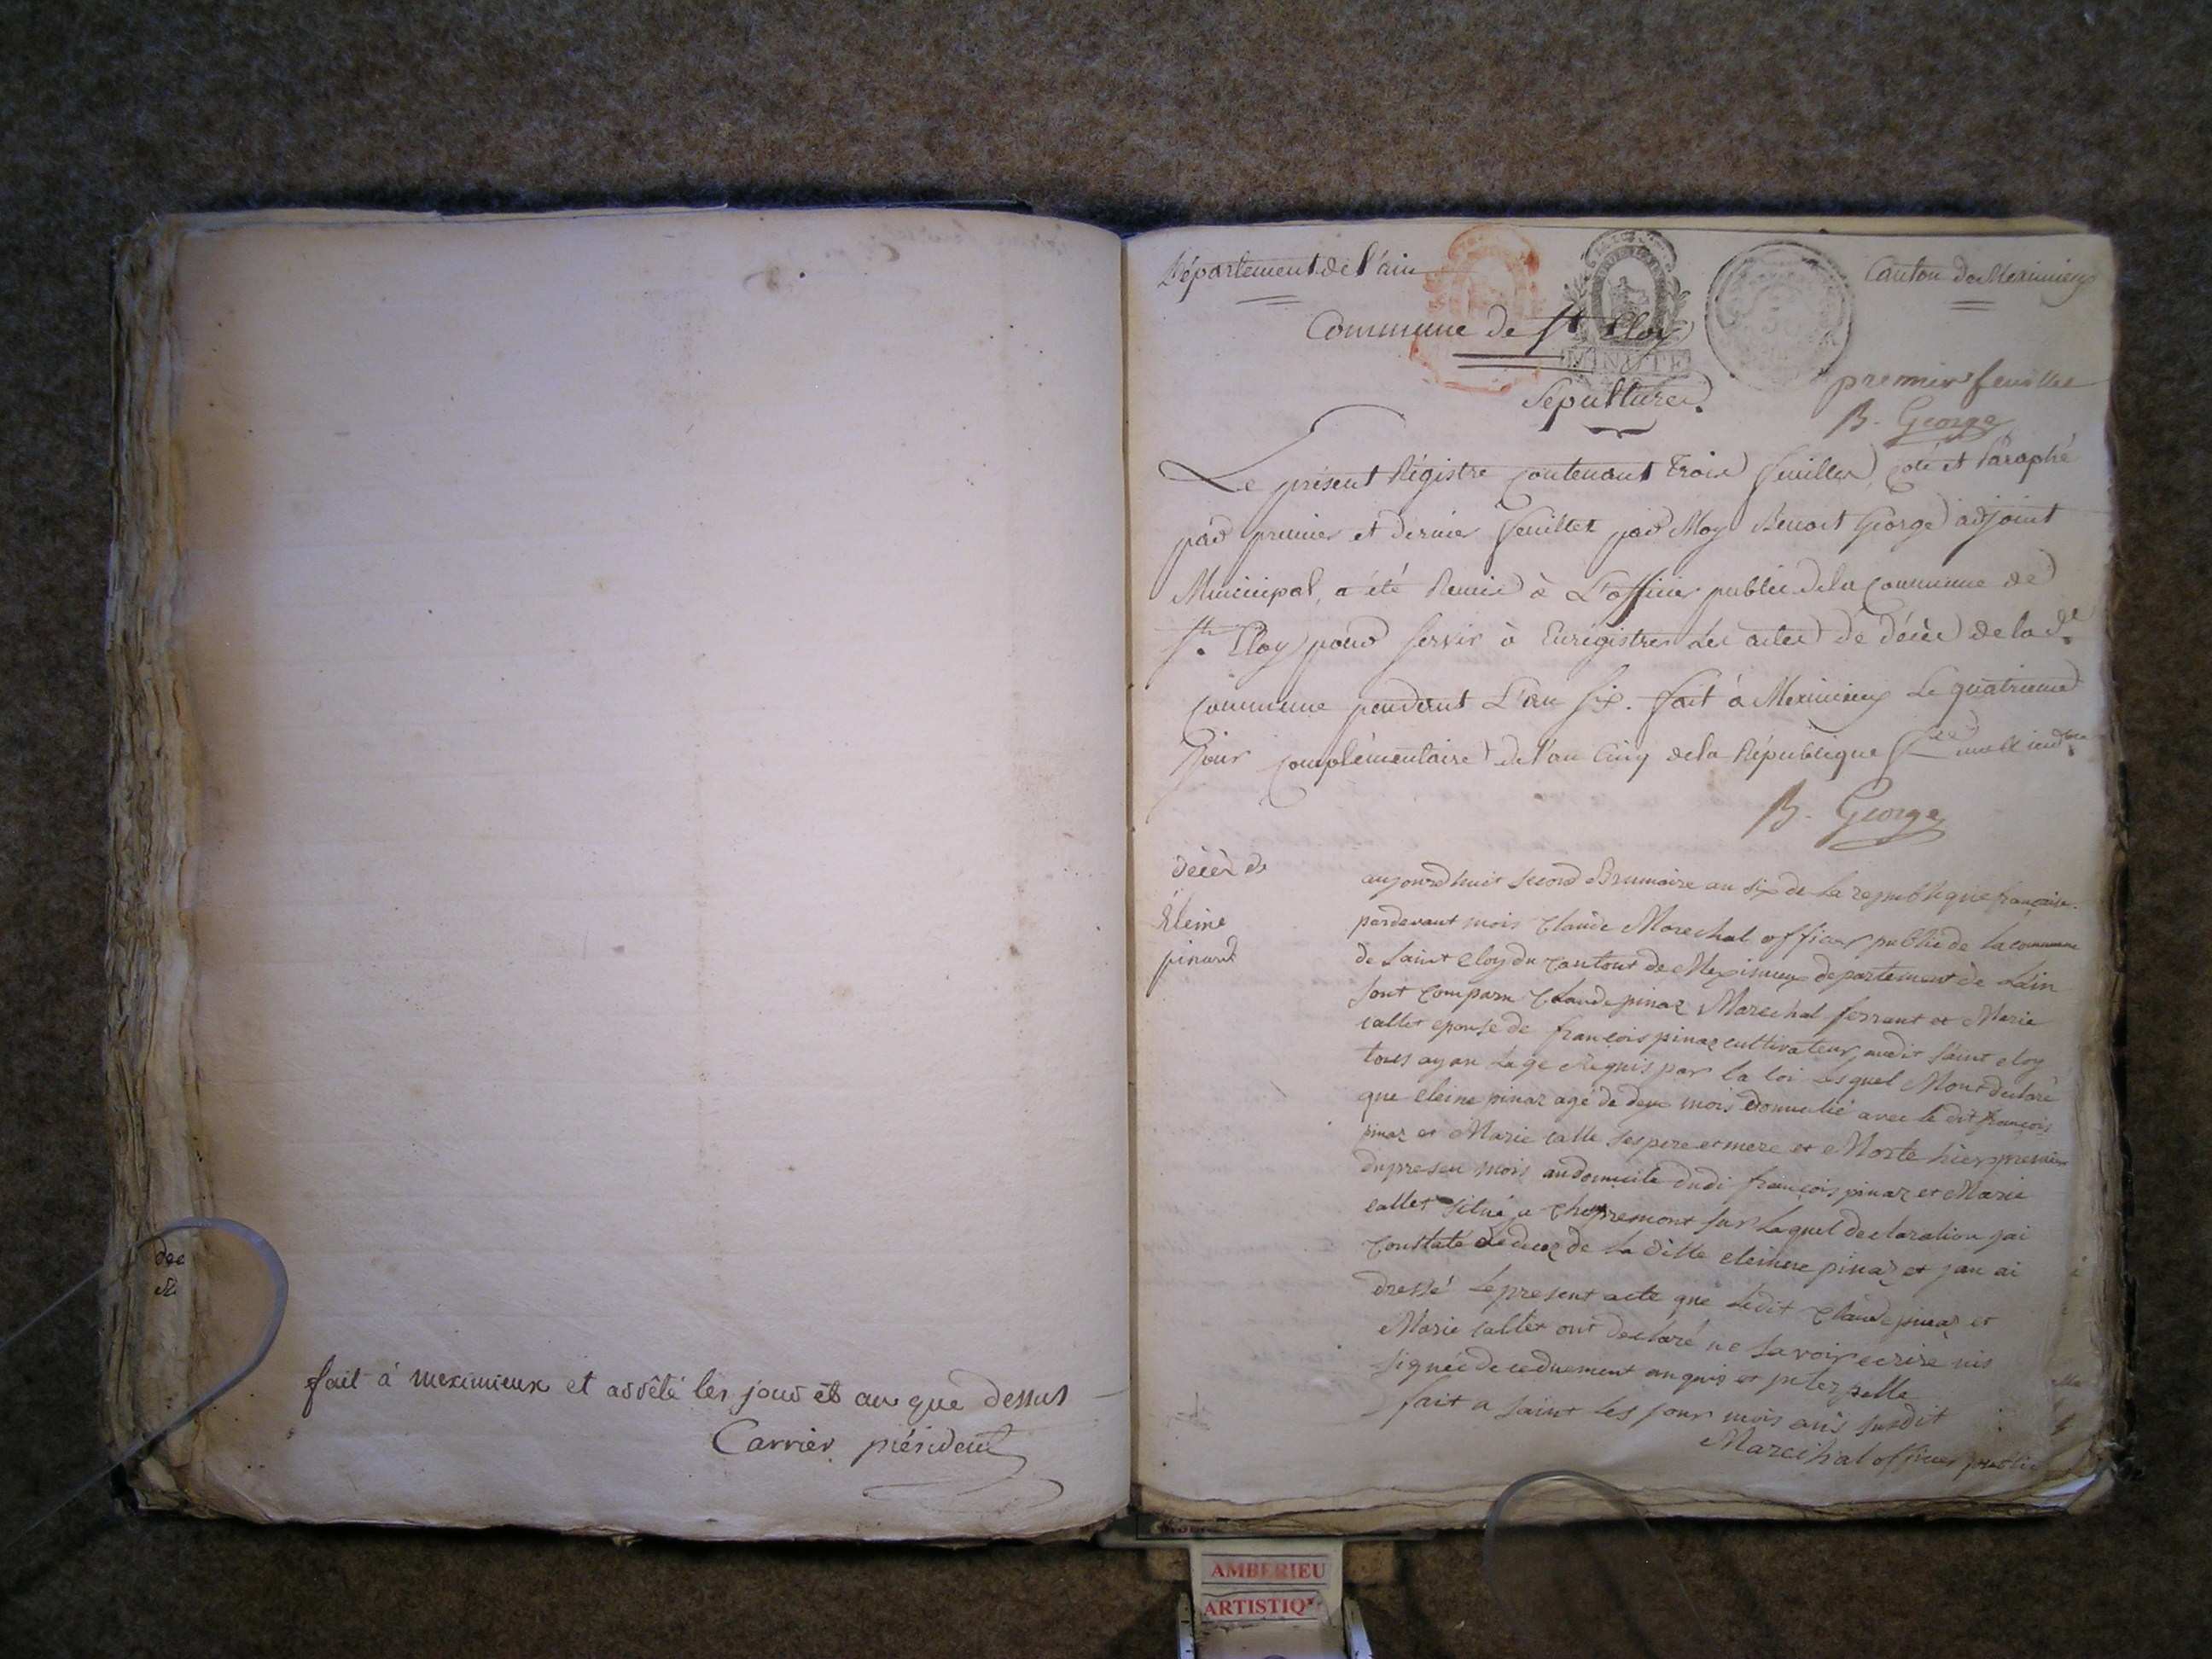 dec
fait à meximieux et arrêté les jour et an que dessus
Carrier président
Département de l'ain
Canton de Meximieux
Commune de St. Eloy
MINUTE
premier feuillet
Sépultures.
B. George
Le présent Régistre Contenant trois feuilles, coté et Paraphé
par premier et dernier feuillet par Moy Benoit George adjoint
Municipal, a été Remis à L'officier public de la Commune de
St. Eloy pour servir à Enrégistrer Les actes de décès de la de.
Commune pendant L'an six. fait à Meximieux Le quatrieme
Jour Complémentaire de l'an Cinq de la République
B. George
décès de
Eleine
pinard
aujourdhuit second Brumaire an six de la republique française.
pardevant mois Claude Marechal officier public de la commune
de saint eloy du cantont de Meximieux departement de Lain
sont comparu Claude pinaz Marechal ferrant et Marie
callet epouse de françois pinaz cultivateur, audit saint eloy
tous ayan Lage Requis par la loi lesquel Mont declaré
que eleine pinaz agé de deux mois domicilié avec le dit françois
pinaz et Marie calle ses pere et mere et Morte hier premier
du presen mois au domicile dudi françois pinaz et Marie
callet situé a chapremont sur laquel declaration jai
constaté le deces de la ditte eleinne pinaz et jan ai
dressé le present acte que ledit Claude pinaz et
Marie callet ont declaré ne savoir ecrire nis
signée de ceduement anquis et
fait a saint les jour mois ans susdit
Marechal officier public
AMBERIEU
ARTISTIQ